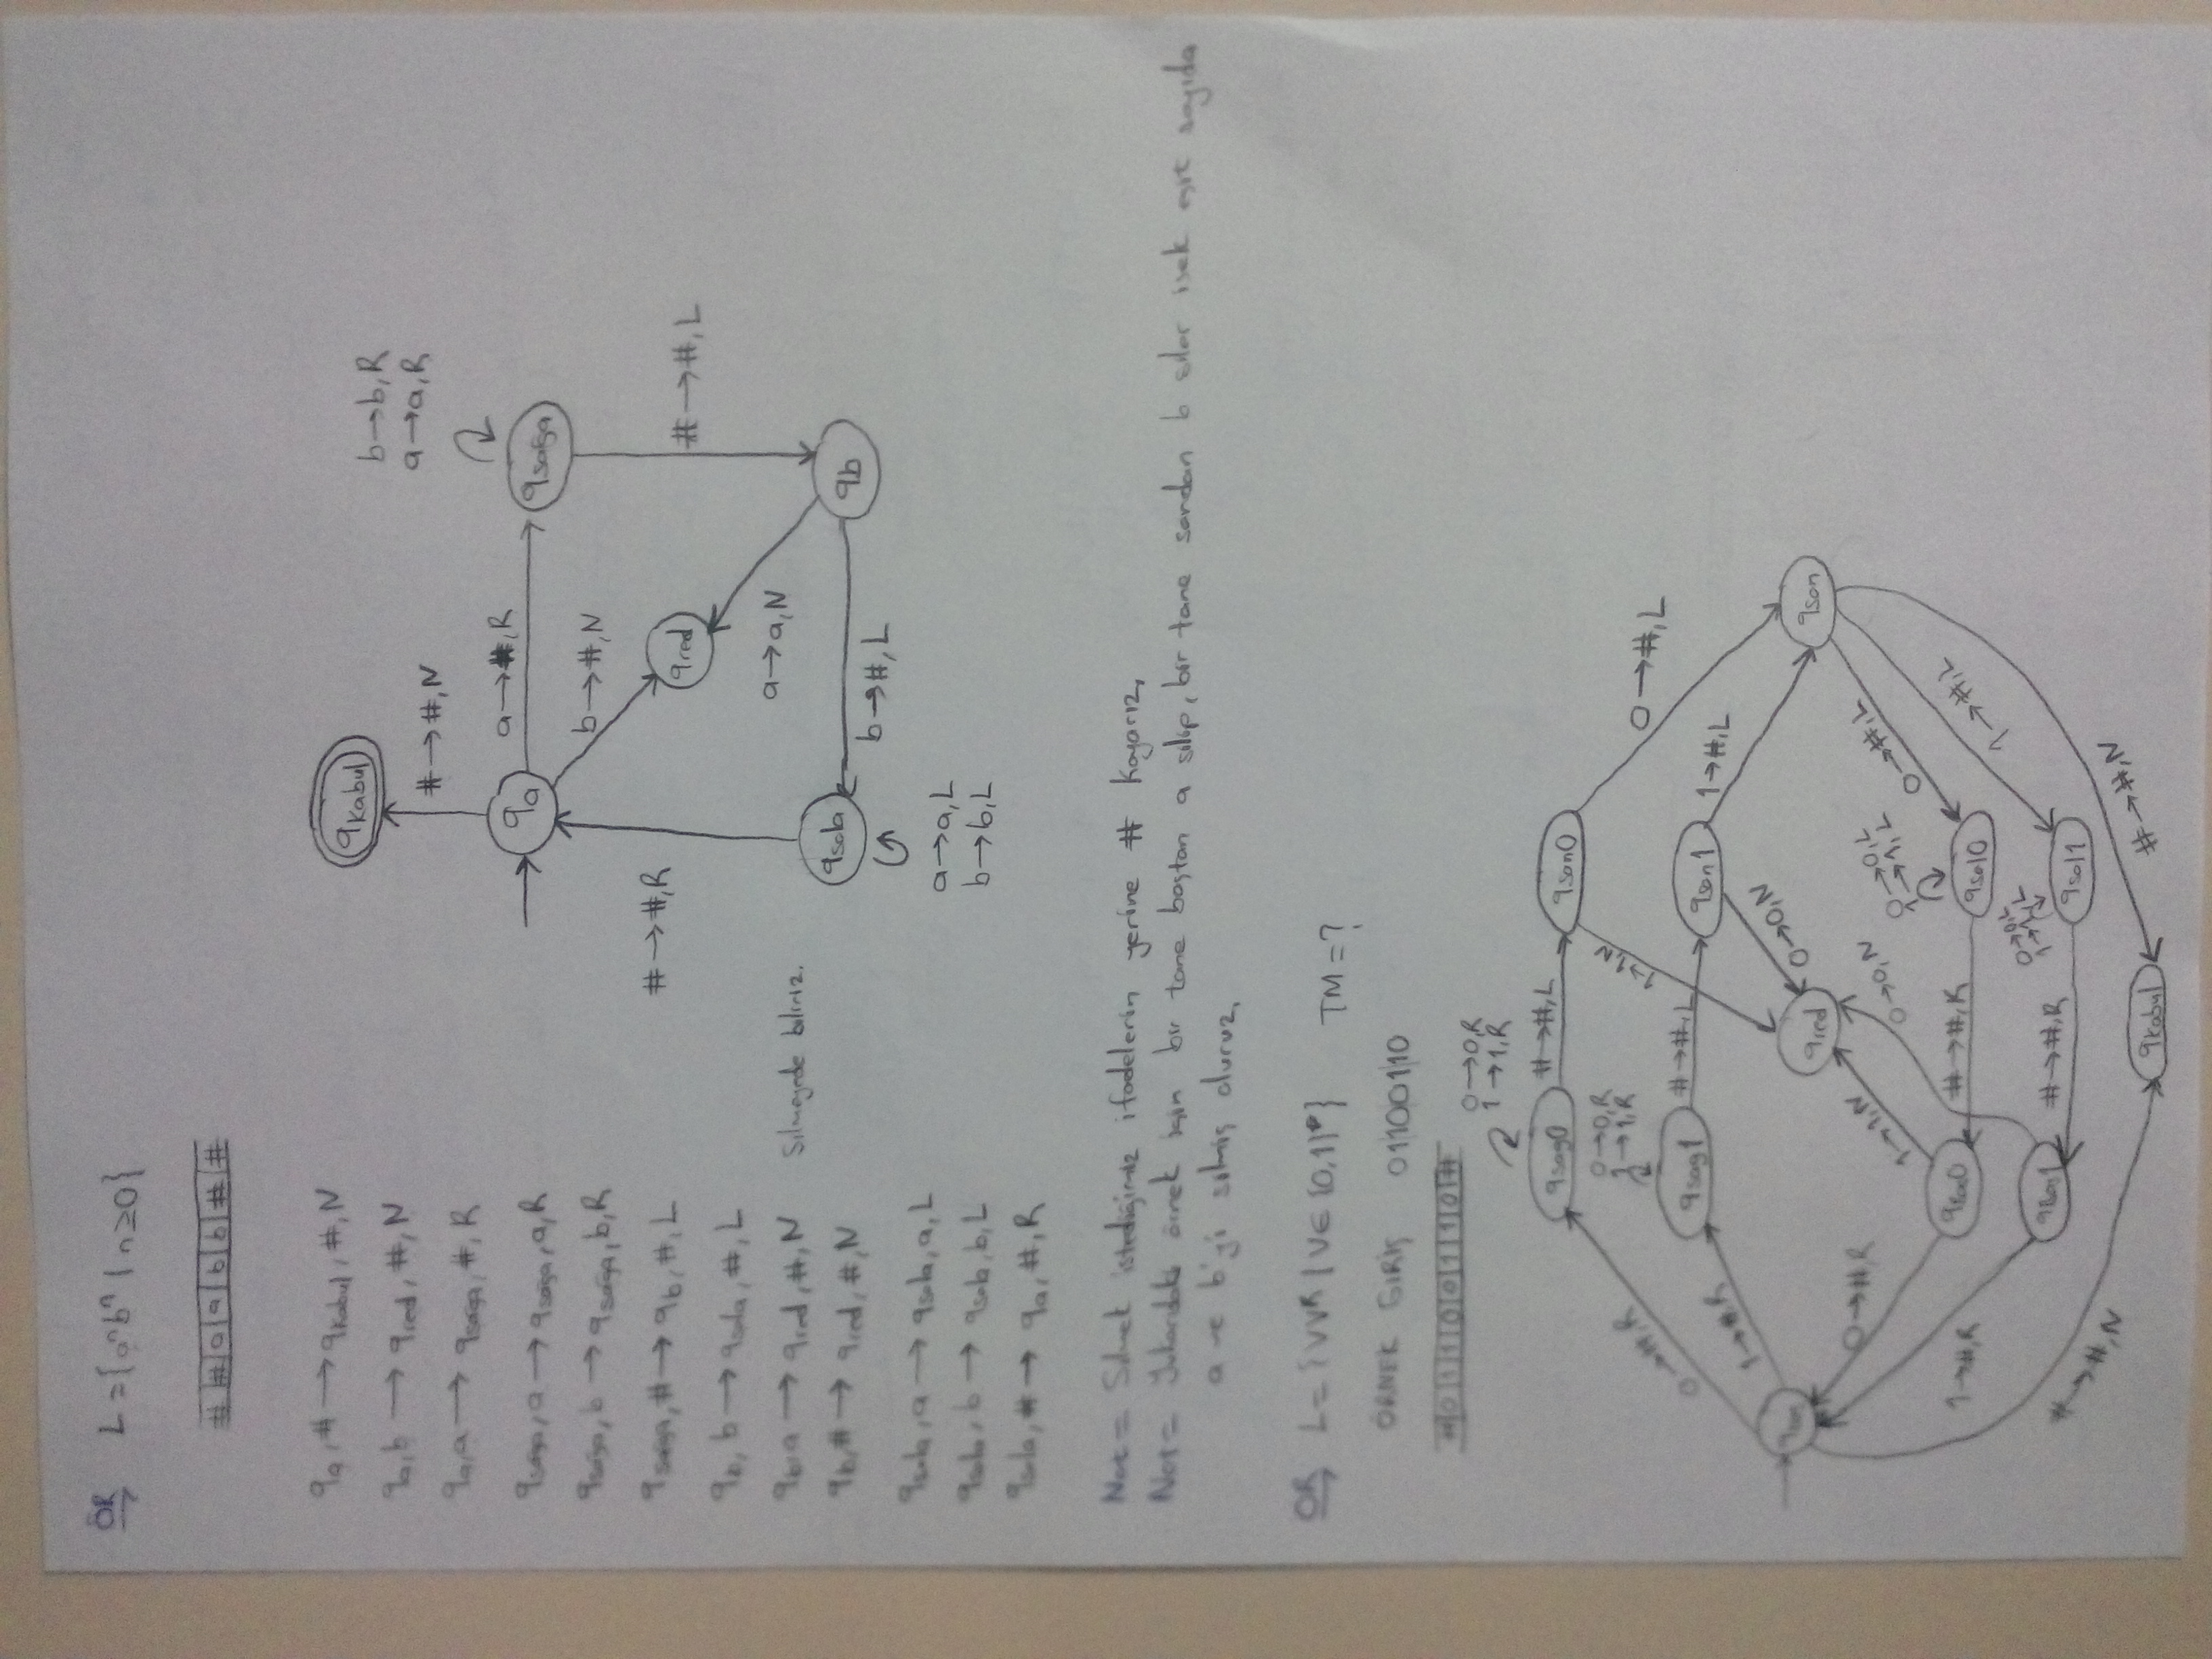 ÖR L = {aⁿbⁿ | n≥0}
# # a a b b # #
qa, # → qkabul, #, N
qa, b → qred, #, N
qa, a → qsağa, #, R
qsağa, a → qsağa, a, R
qsağa, b → qsağa, b, R
qsağa, # → qb, #, L
qb, b → qsola, #, L
qb, a → qred, #, N Silmeyede biliriz.
qb, # → qred, #, N
qsola, a → qsola, a, L
qsola, b → qsola, b, L
qsola, # → qa, #, R
qkabul
# → #, N
b → b, R
a → a, R
qa
a → #, R
qsağa
b → #, N
# → #, R
qred
# → #, L
a → a, N
qsola
b → #, L
qb
a → a, L
b → b, L
Not = Silmek istediğimiz ifadelerin yerine # koyarız.
Not = Yukarıdaki örnek için bir tane baştan a silip, bir tane sondan b siler isek eşit sayıda
a ve b'yi silmiş oluruz.
ÖR L = {VVᴿ | V∈ {0,1}*} TM = ?
ÖRNEK GİRİŞ 01100110
# 0 1 1 0 0 1 1 0 #
0 → 0, R
1 → 1, R
qsag0
# → #, L
qson0
0 → 0, R
1 → 1, R
0 → #, R
1 → 1, N
0 → #, L
qsag1
# → #, L
qson1
1 → #, L
1 → #, R
0 → 0, N
qred
qson
0 → #, R
1 → 1, N
0 → 0, N
0 → 0, L
1 → 1, L
0 → #, L
# → #, R
qsol0
1 → #, R
1 → #, L
0 → 0, L
1 → 1, L
# → #, R
qsol1
# → #, N
# → #, N
qkabul